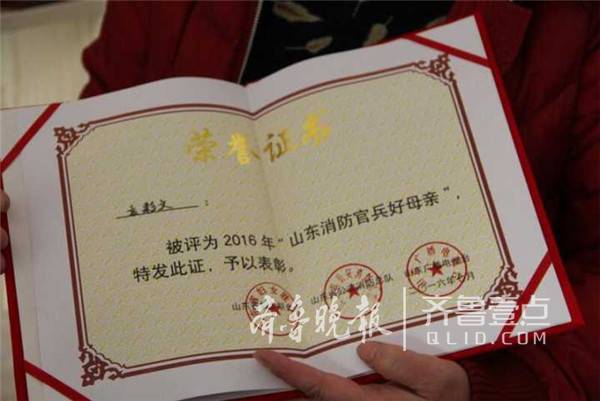 荣誉证书
：
被评为2016年“山东消防官兵好母亲”，
特发此证，予以表彰。
二〇一六年七月
齐鲁晚报
齐鲁壹点
QLID.COM